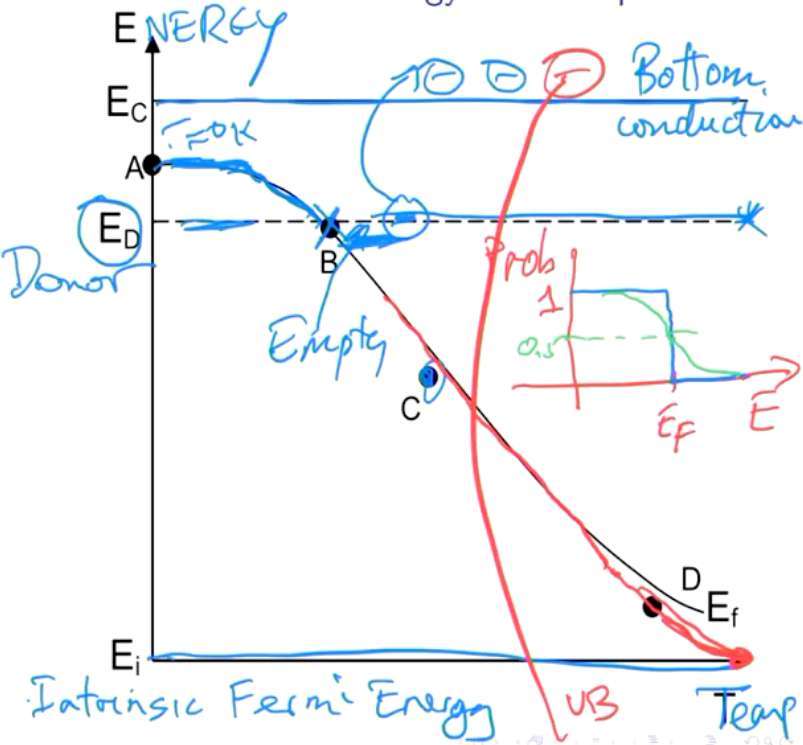 ENERGY
E_C
Bottom
conduction
T=0K
A
E_D
Donor
B
Empty
Prob
1
0.5
E_F
E
C
D
E_f
E_i
Intrinsic Fermi Energy
VB
Temp